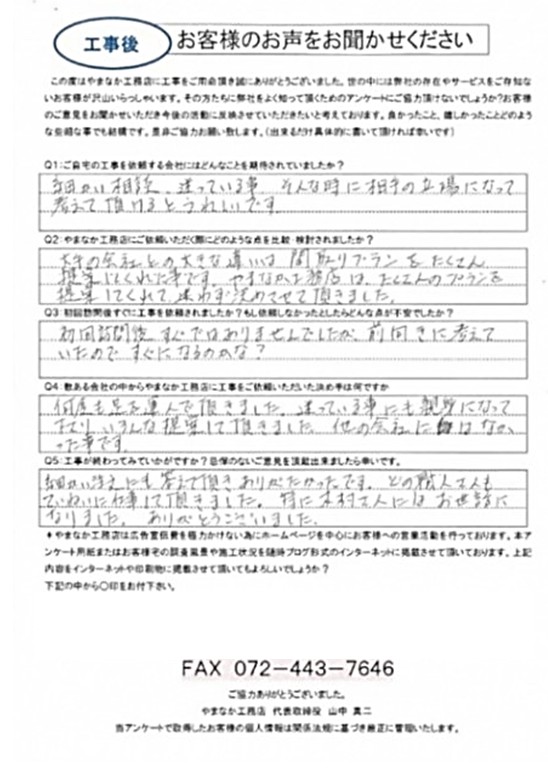 工事後
お客様のお声をお聞かせください
この度はやまなか工務店に工事をご用命頂き誠にありがとうございました。世の中には弊社の存在やサービスをご存知な
いお客様が沢山いらっしゃいます。その方たちに弊社をよく知って頂くためのアンケートにご協力頂けないでしょうか?お客様
のご意見をお聞かせいただき今後の活動に反映させていただきたいと考えております。良かったこと、嬉しかったことどのよう
な些細な事でも結構です。是非ご協力お願い致します。(出来るだけ具体的に書いて頂ければ幸いです)
Q1:ご自宅の工事を依頼する会社にはどんなことを期待されていましたか?
細かい相談、迷っている事 そんな時に相手の立場になって
考えて頂けるとうれしいです。
Q2:やまなか工務店にご依頼いただく際にどのような点を比較・検討されましたか?
大手の会社との大きな違いは 間取りプランをたくさん
提案してくれた事です。やまなか工務店は、たくさんのプランを
提案してくれて、迷わず決めさせて頂きました。
Q3:初回訪問後すぐに工事を依頼されましたか?もし依頼しなかったとしたらどんな点が不安でしたか?
初回訪問後、すぐではありませんでしたが、前向きに考えて
いたので すぐになるのかな?
Q4:数ある会社の中からやまなか工務店に工事をご依頼いただいた決め手は何ですか
何度も足を運んで頂きました。迷っている事にも親身になって
おり、いろんな提案して頂きました。他の会社にはなか
った事です。
Q5:工事が終わってみていかがですか?忌憚のないご意見を頂戴出来ましたら幸いです。
細かい注文にも答えて頂きありがたかったです。どの職人さんも
ていねいに仕事して頂きました。特に木村さんにはお世話に
なりました。ありがとうございました。
*やまなか工務店は広告宣伝費を極力かけない為にホームページを中心にお客様への営業活動を行っております。本ア
ンケート用紙またはお客様宅の調査風景や施工状況を随時ブログ形式のインターネットに掲載させて頂いております。上記
内容をインターネットや印刷物に掲載させて頂いてもよろしいでしょうか?
下記の中から〇印をお付下さい。
FAX 072-443-7646
ご協力ありがとうございました。
やまなか工務店 代表取締役 山中 真二
当アンケートで取得したお客様の個人情報は関係法規に基づき厳正に管理いたします。